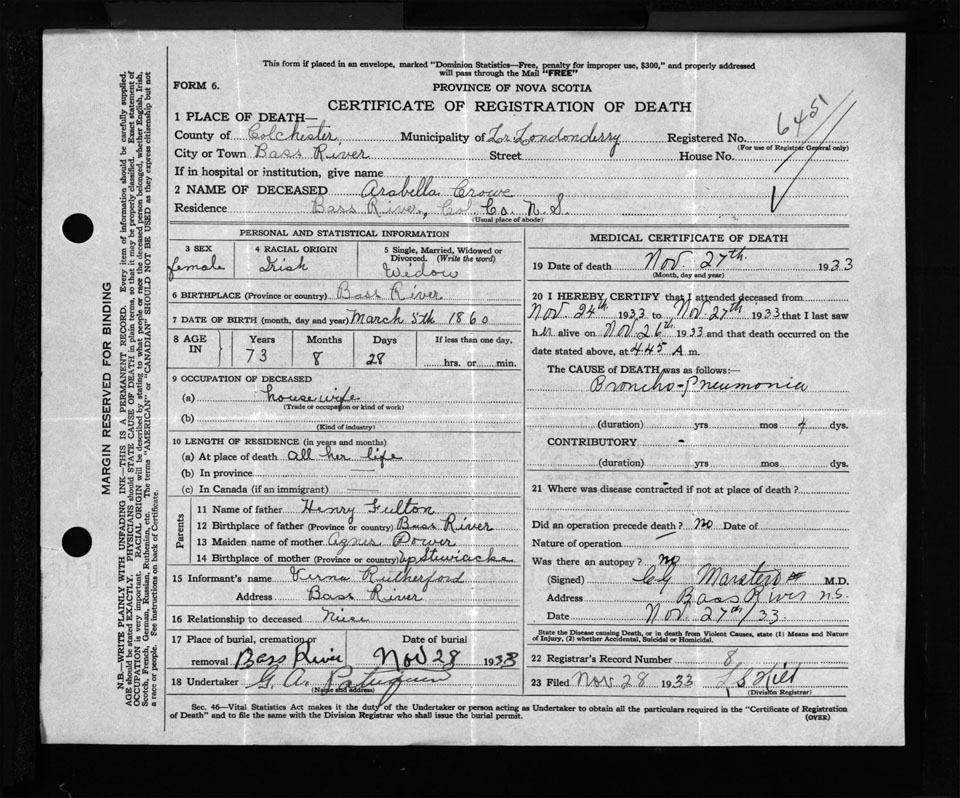 This form if placed in an envelope, marked "Dominion Statistics—Free, penalty for improper use, $300," and properly addressed
will pass through the Mail "FREE"
FORM 6.
PROVINCE OF NOVA SCOTIA
CERTIFICATE OF REGISTRATION OF DEATH
1 PLACE OF DEATH—
County of Colchester, Municipality of Lr. Londonderry Registered No. 6451
(For use of Registrar General only)
City or Town Bass River Street House No.
If in hospital or institution, give name
2 NAME OF DECEASED Arabella Crowe
Residence Bass River, Col. Co. N. S.
(Usual place of abode)
PERSONAL AND STATISTICAL INFORMATION
3 SEX female
4 RACIAL ORIGIN Irish
5 Single, Married, Widowed or
Divorced. (Write the word)
Widow
6 BIRTHPLACE (Province or country) Bass River
7 DATE OF BIRTH (month, day and year) March 5th 1860
8 AGE IN Years 73 Months 8 Days 28 If less than one day, hrs. or min.
9 OCCUPATION OF DECEASED
(a) housewife
(Trade or occupation or kind of work)
(b)
(Kind of industry)
10 LENGTH OF RESIDENCE (in years and months)
(a) At place of death all her life
(b) In province
(c) In Canada (if an immigrant)
Parents
11 Name of father Henry Fulton
12 Birthplace of father (Province or country) Bass River
13 Maiden name of mother Agnes Power
14 Birthplace of mother (Province or country) Up Stewiacke
15 Informant's name Verna Rutherford
Address Bass River
16 Relationship to deceased Niece
17 Place of burial, cremation or removal Bass River
Date of burial Nov 28 1933
18 Undertaker G. A.
(Name and address)
MEDICAL CERTIFICATE OF DEATH
19 Date of death Nov 27th 1933
(Month, day and year)
20 I HEREBY, CERTIFY that I attended deceased from
Nov 24th 1933 to Nov 27th 1933 that I last saw
her alive on Nov 26th 1933 and that death occurred on the
date stated above, at 445 A m.
The CAUSE of DEATH was as follows:
Broncho-Pneumonia
(duration) yrs mos 4 dys.
CONTRIBUTORY -
(duration) yrs mos dys.
21 Where was disease contracted if not at place of death?
Did an operation precede death? No Date of
Nature of operation
Was there an autopsy? no
(Signed) Marsters M.D.
Address Bass River N.S.
Date Nov 27th/33
State the Disease causing Death, or in death from Violent Causes, state (1) Means and Nature
of Injury, (2) whether Accidental, Suicidal or Homicidal.
22 Registrar's Record Number 8
23 Filed Nov 28 1933
(Division Registrar)
Sec. 46—Vital Statistics Act makes it the duty of the Undertaker or person acting as Undertaker to obtain all the particulars required in the "Certificate of Registration
of Death" and to file the same with the Division Registrar who shall issue the burial permit.
(OVER)
MARGIN RESERVED FOR BINDING
N.B.—WRITE PLAINLY WITH UNFADING INK—THIS IS A PERMANENT RECORD. Every item of information should be carefully supplied.
AGE should be stated EXACTLY. PHYSICIANS should STATE CAUSE OF DEATH in plain terms, so that it may be properly classified. Exact statement of
OCCUPATION is very important. RACIAL ORIGIN will be described by stating to what people or race the deceased person belonged, whether English, Irish,
Scotch, French, German, Russian, Ruthenian, etc. The terms "AMERICAN" or "CANADIAN" SHOULD NOT BE USED as they express citizenship but not
a race or people. See instructions on back of Certificate.